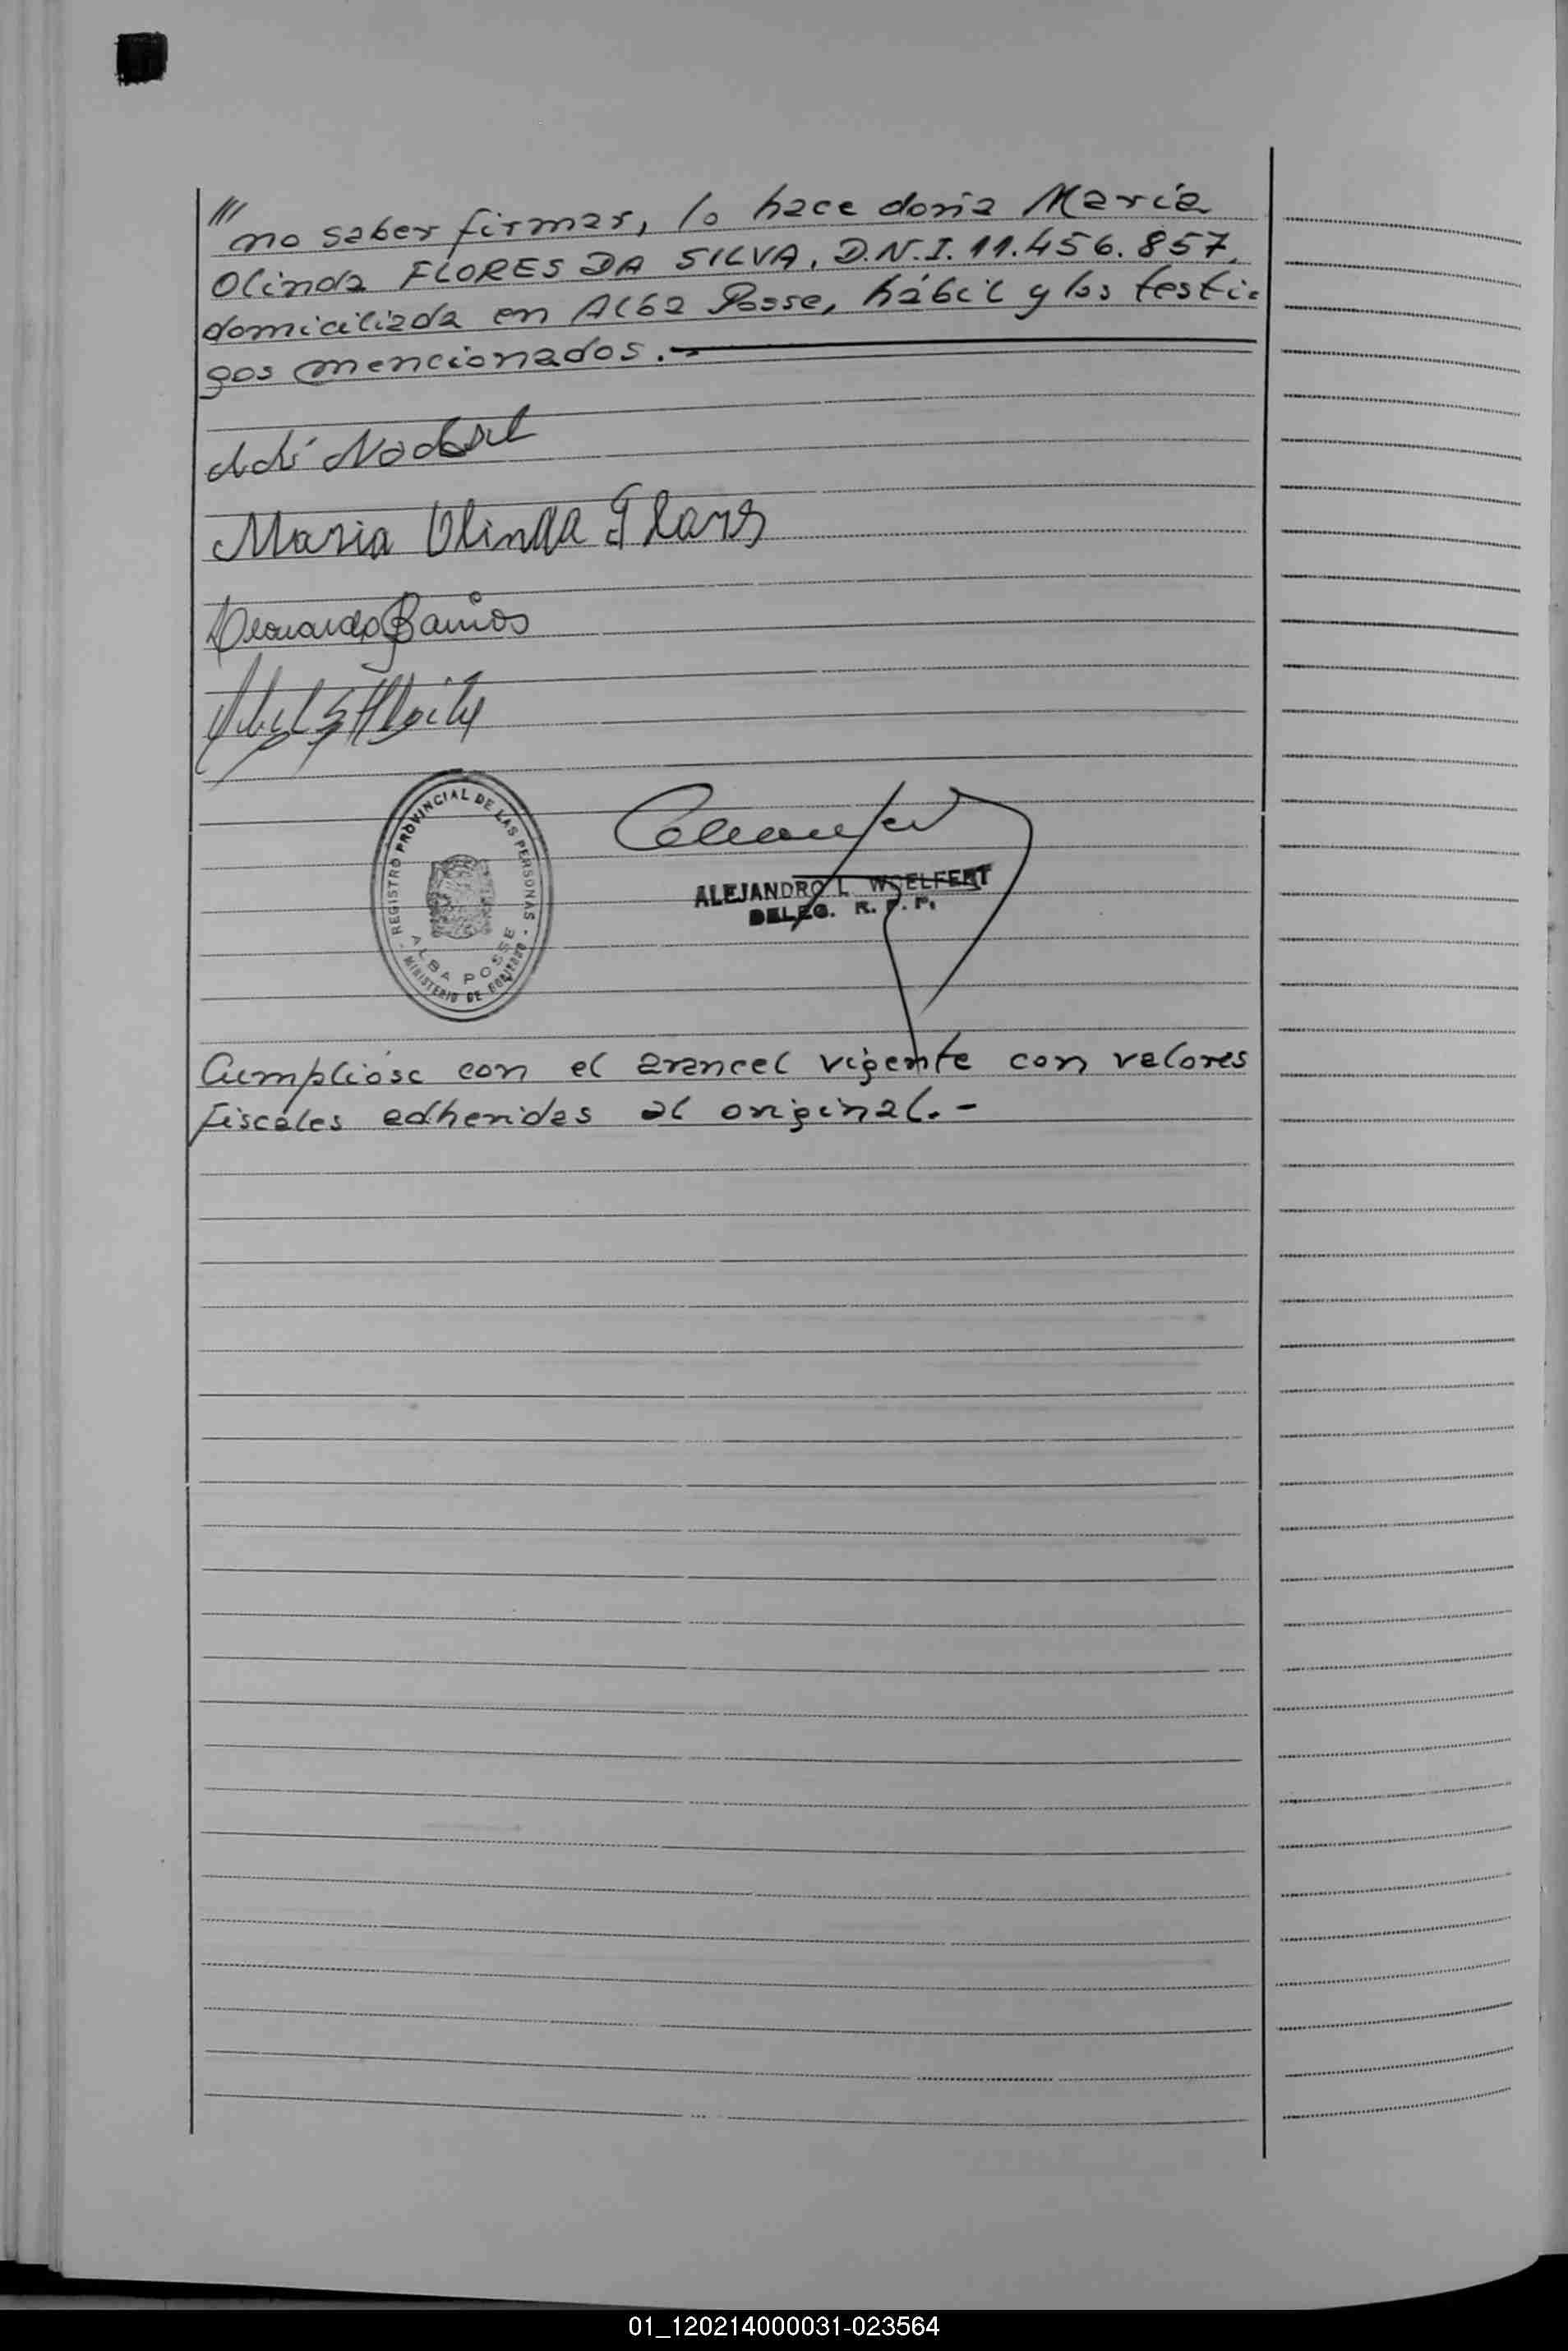 ///
no saber firmar, lo hace doña María
Olinda FLORES DA SILVA, D.N.I. 11.456.857,
domiciliada en Alba Posse, hábil y los testi-
gos mencionados.-
Maria Olinda Flores
ALEJANDRO L. WOELFERT
DELEG. R. P. P.
REGISTRO PROVINCIAL DE LAS PERSONAS
ALBA POSSE
MINISTERIO DE GOBIERNO
Cumplióse con el arancel vigente con valores
fiscales adheridas al original.-
01_120214000031-023564